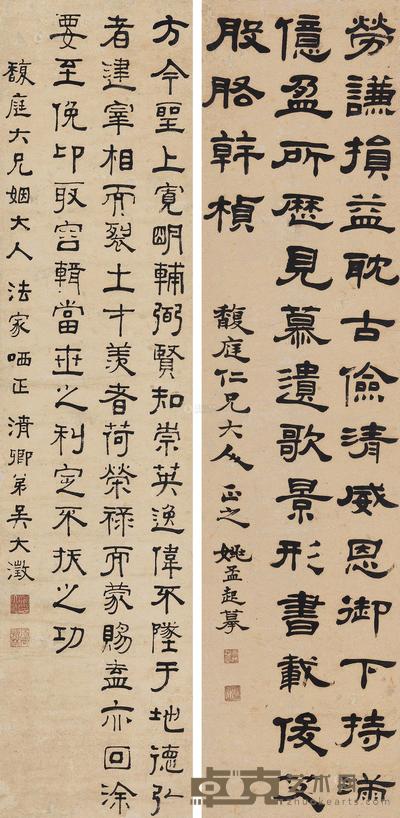 勞謙損益耽古儉清威恩御下持滿
億盈所歷見慕遺歌景形書載俊艾
股肱幹楨
馥庭仁兄大人正之 姚孟起摹
方今聖上寬明輔弼賢知崇英逸偉不墜于地德弘
者建宰相而裂土才羨者荷榮祿而蒙賜盍亦回涂
要至俛卬取容輯當世之利定不拔之功
馥庭大兄姻大人法家哂正 清卿弟吳大澂
卓克艺术网
zhuokearts.com